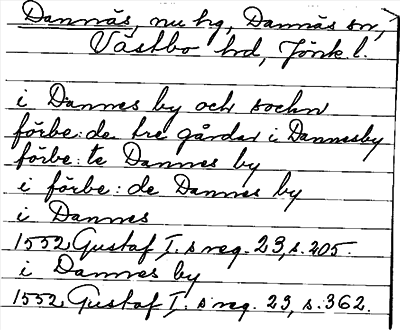 Dannäs, nu hg, Dannäs sn,
Västbo hd, Jönk. l.
i Dannes by och sochn
förbe:de tre gårdar i Dannesby
förbe:te Dannes by
i förbe:de Dannes by
i Dannes
1552 Gustaf I.s reg. 23, s. 205.
i Dannes by
1552 Gustaf I.s reg. 23, s. 362.